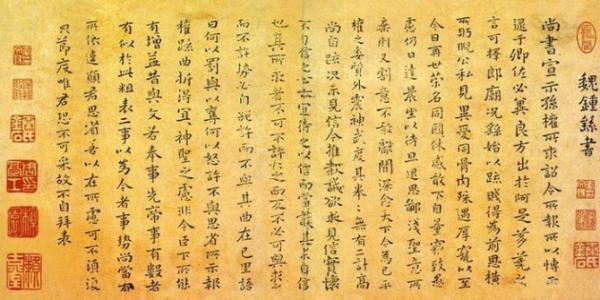 魏鍾繇書
尚書宣示孫權所求詔令所報所以博示
逮于卿佐必冀良方出於阿是芻蕘之
言可擇郎廟況繇始以疏賤得為前恩橫
所盱睨公私見異愛同骨肉殊遇厚寵以至
今日再世榮名同國休慼敢不自量竊致愚
慮仍日達晨坐以待旦退思鄙淺聖意所
棄則又割意不敢獻聞深念天下今為已平
權之委質外震神武度其拳拳無有二計高
尚自疏況未見信今推款誠欲求見信實懷
不自信之心亦宜待之以信而當護其未自信
也其所求者不可不許許之而反不必可與求之
而不許勢必自絕許而不與其曲在己里語
曰何以罰與以奪何以怒許不與思省所示報
權疏曲折得宜神聖之慮非今臣下所能
有增益昔與文若奉事先帝事有數者
有似於此粗表二事以為今者事勢尚當有
所依違願君思省若以在所慮可不須復
貌節度唯君恐不可采故不自拜表